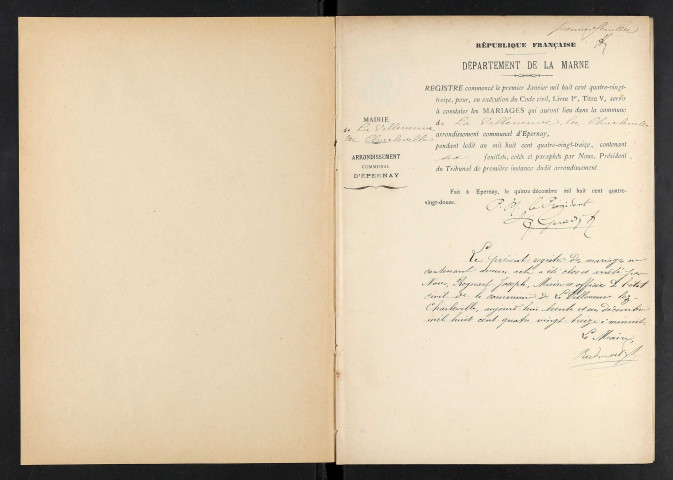 premier feuillet
RÉPUBLIQUE FRANÇAISE
DÉPARTEMENT DE LA MARNE
REGISTRE commencé le premier Janvier mil huit cent quatre-vingt-
treize, pour, en exécution du Code civil, Livre Ier, Titre V, servir
à constater les MARIAGES qui auront lieu dans la commune
de La Villeneuve les Charleville
arrondissement communal d'Epernay,
pendant ledit an mil huit cent quatre-vingt-treize, contenant
six feuillets, cotés et paraphés par Nous, Président
du Tribunal de première instance dudit arrondissement.
MAIRIE
de La Villeneuve
les Charleville
ARRONDISSEMENT
COMMUNAL
D'ÉPERNAY
Fait à Epernay, le quinze décembre mil huit cent quatre-
vingt-douze.
P. le Président
Le présent registre des mariages ne
contenant aucun acte a été clos et arrêté par
Nous, Joseph, Maire et officier de l'état
civil de la commune de La Villeneuve lez-
Charleville, aujourd'hui trente et un décembre
mil huit cent quatre vingt treize
Le Maire,